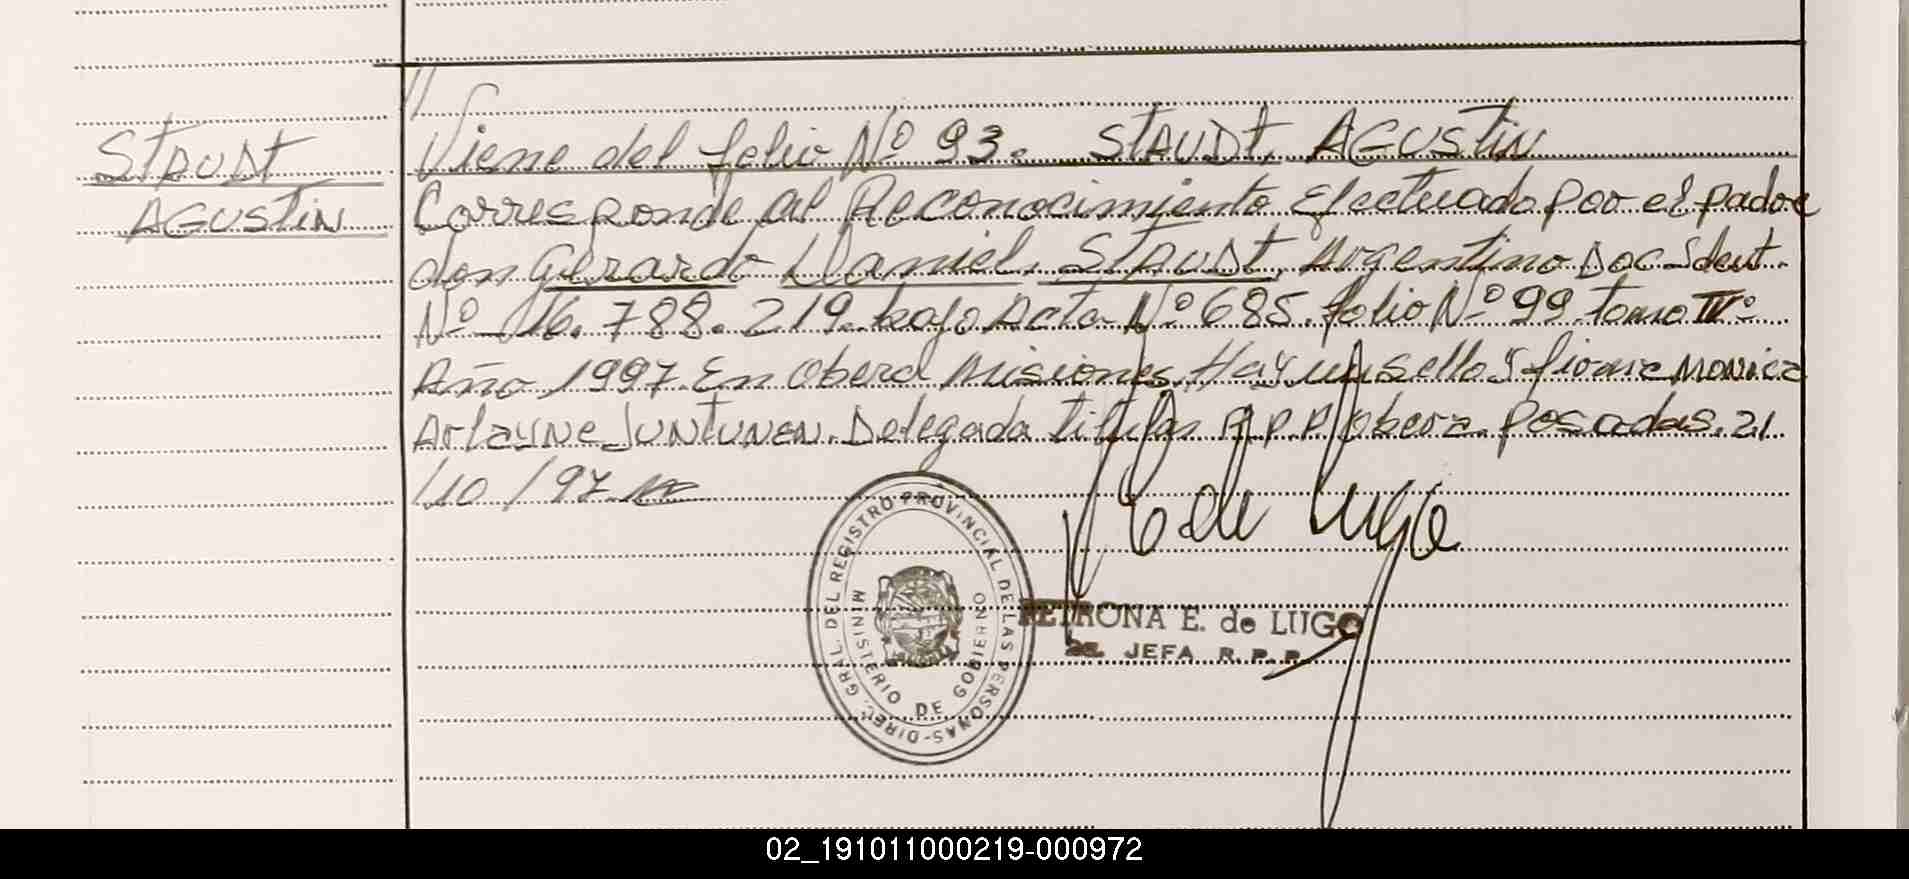 //
STAUDT
AGUSTIN
Viene del folio Nº 93. STAUDT, AGUSTIN
Corresponde al Reconocimiento Efectuado por el padre
don Gerardo Daniel STAUDT, Argentino Doc Ident.
Nº 16.788.219. bajo Acta Nº 685. folio Nº 99 tomo IVº
Año 1997. En Oberá Misiones. Hay un sello y firma MONICA
Arlayne JUNTUNEN. Delegada titular R.P.P. Oberá. Posadas. 21
/10/97.
E de Lugo
DIREC. GRAL. DEL REGISTRO PROVINCIAL DE LAS PERSONAS-
MINISTERIO DE GOBIERNO
PETRONA E. de LUGO
JEFA R.P.P.
02_191011000219-000972